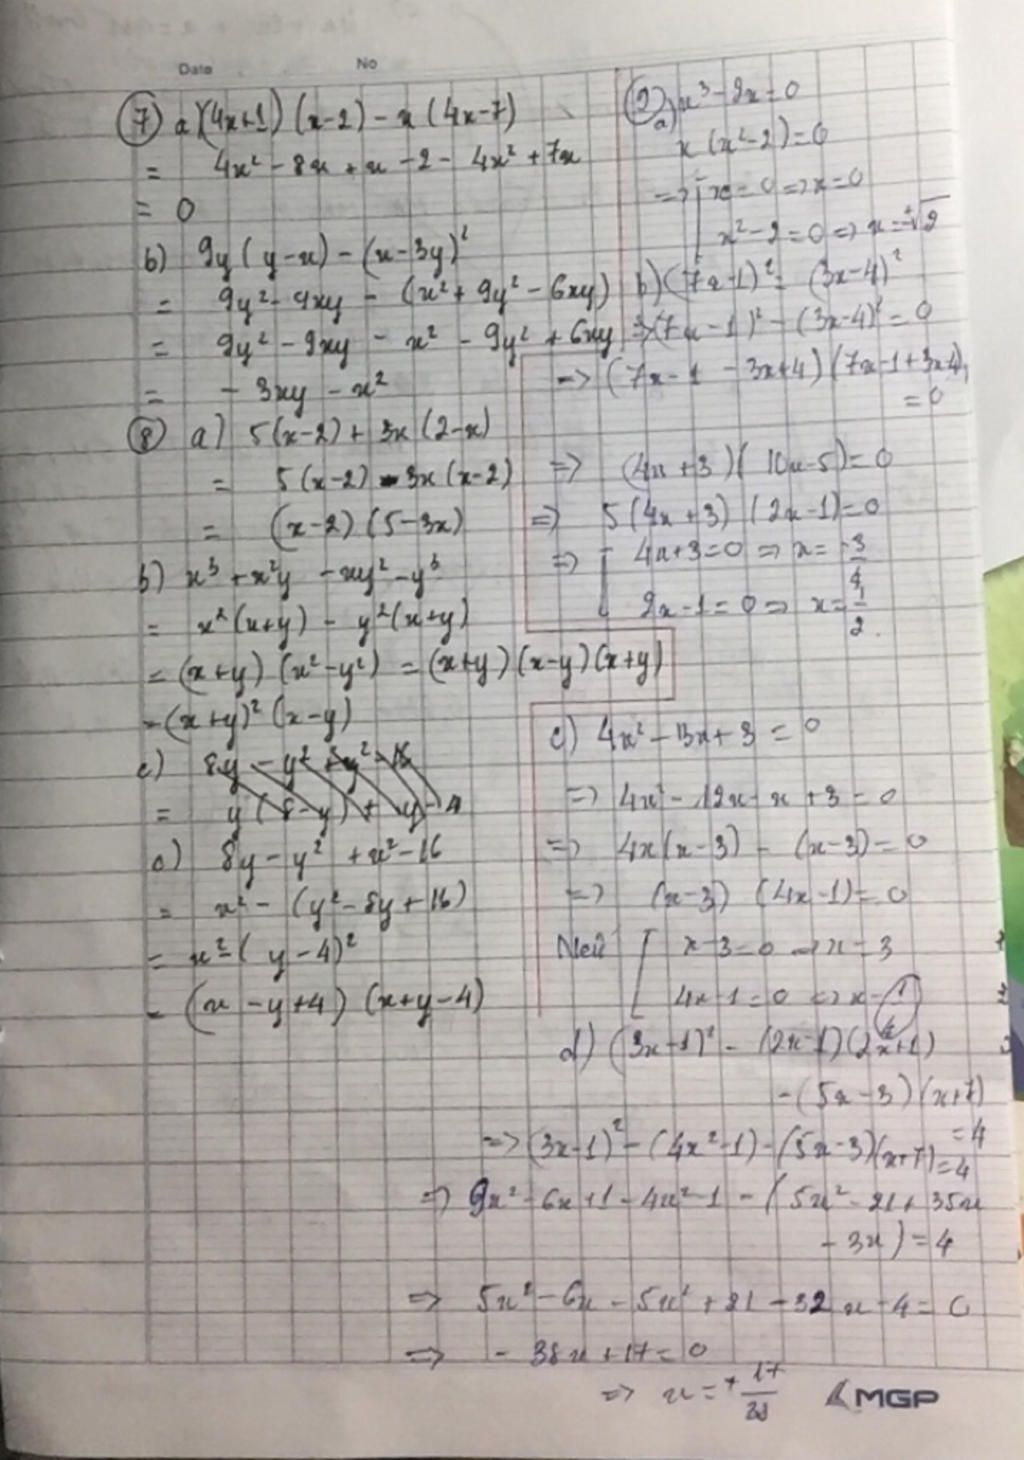 Date No
7) a) (4x+1) (x-2) - x (4x-7)
= 4x² - 8x + x - 2 - 4x² + 7x
= 0
b) 9y (y-x) - (x-3y)²
= 9y² - 9xy - (x² + 9y² - 6xy)
= 9y² - 9xy - x² - 9y² + 6xy
= - 3xy - x²
8) a) 5(x-2) + 3x (2-x)
= 5(x-2) - 3x (x-2)
= (x-2) (5-3x)
b) x³ + x²y - xy² - y³
= x² (x+y) - y² (x+y)
= (x+y) (x²-y²) = (x+y) (x-y) (x+y)
= (x+y)² (x-y)
c) 8y - y²
= y (8-y) + y-4
c) 8y - y² + x² - 16
= x² - (y² - 8y + 16)
= x² - (y-4)²
= (x - y+4) (x+y-4)
9) a) x³ - 2x = 0
x (x²-2) = 0
=> [ x = 0 => x = 0
x² - 2 = 0 => x = ±√2
b) (7x-1)² = (3x-4)²
=> (7x-1)² - (3x-4)² = 0
=> (7x-1 - 3x+4) (7x-1+3x-4)
= 0
=> (4x+3) (10x-5) = 0
=> 5(4x+3) (2x-1) = 0
=> [ 4x+3=0 => x = -3/4
2x-1=0 => x = 1/2
c) 4x² - 13x + 3 = 0
=> 4x² - 12x - x + 3 = 0
=> 4x(x-3) - (x-3) = 0
=> (x-3) (4x-1) = 0
[ x-3=0 => x = 3
4x-1=0 => x = 1/4
d) (3x-1)² - (2x-1)(2x+1)
- (5x-3) (x+7)
= 4
=> (3x-1)² - (4x²-1) - (5x-3)(x+7) = 4
=> 9x² - 6x + 1 - 4x² - 1 - (5x² - 21 + 35x
- 3x) = 4
=> 5x² - 6x - 5x² + 21 - 32x - 4 = 0
=> - 38x + 17 = 0
=> x = + 17/38
MGP